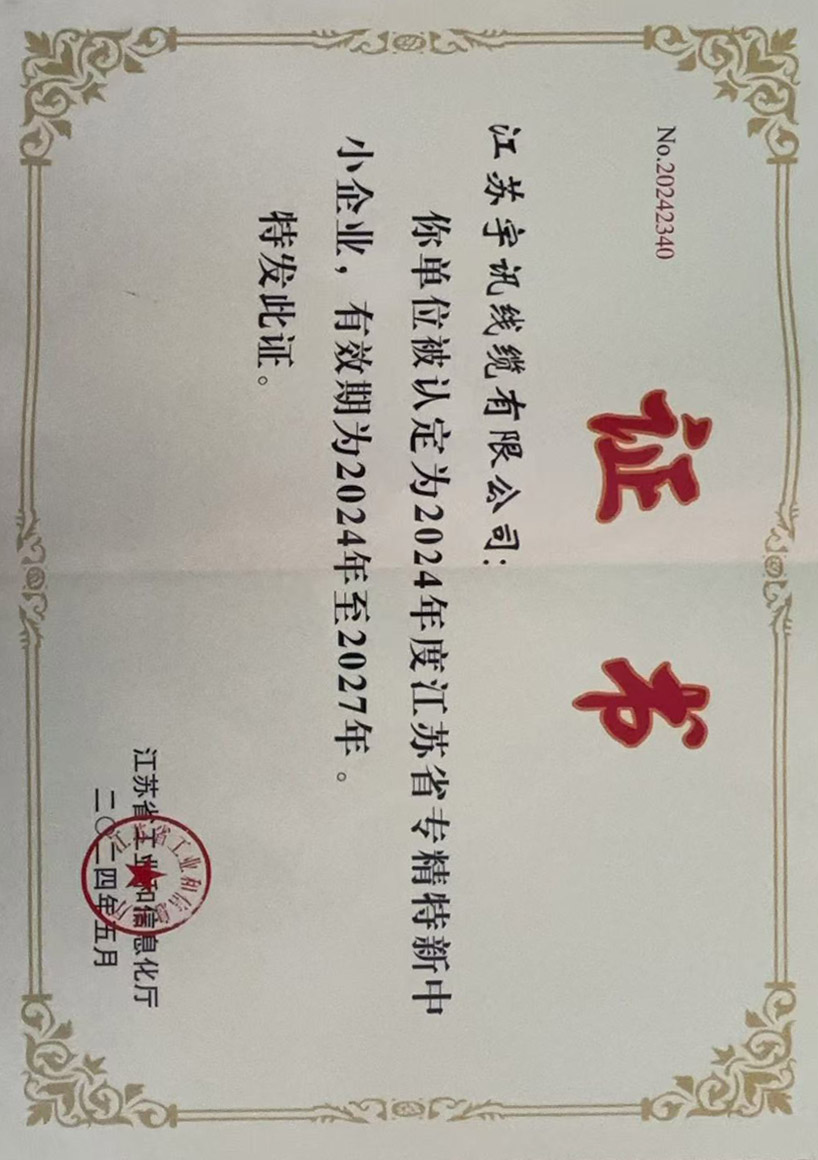 No.20242340
证书
江苏宇讯线缆有限公司：
你单位被认定为2024年度江苏省专精特新中
小企业，有效期为2024年至2027年。
特发此证。
江苏省工业和信息化厅
二〇二四年五月